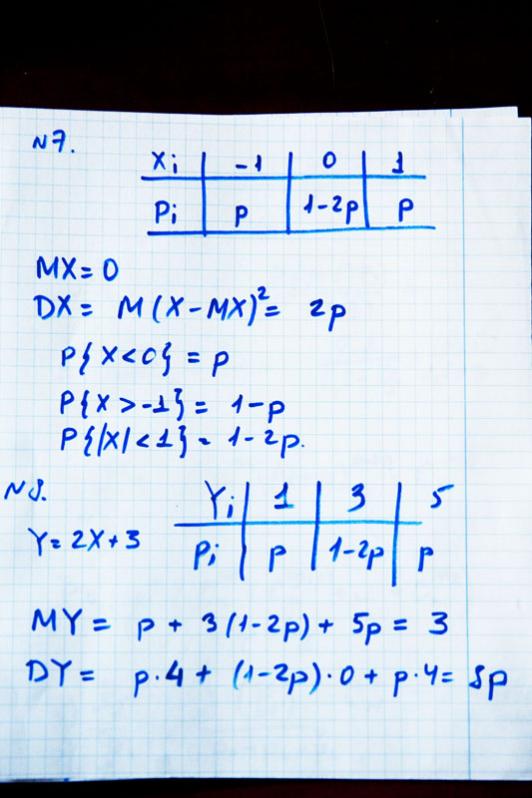 N7.
Xi | -1 | 0 | 1
Pi | p | 1-2p | p
MX = 0
DX = M(X-MX)² = 2p
P{X<0} = p
P{X>-1} = 1-p
P{|X|<1} = 1-2p.
N8.
Yi | 1 | 3 | 5
Y = 2X+3
Pi | p | 1-2p | p
MY = p + 3(1-2p) + 5p = 3
DY = p·4 + (1-2p)·0 + p·4 = 8p